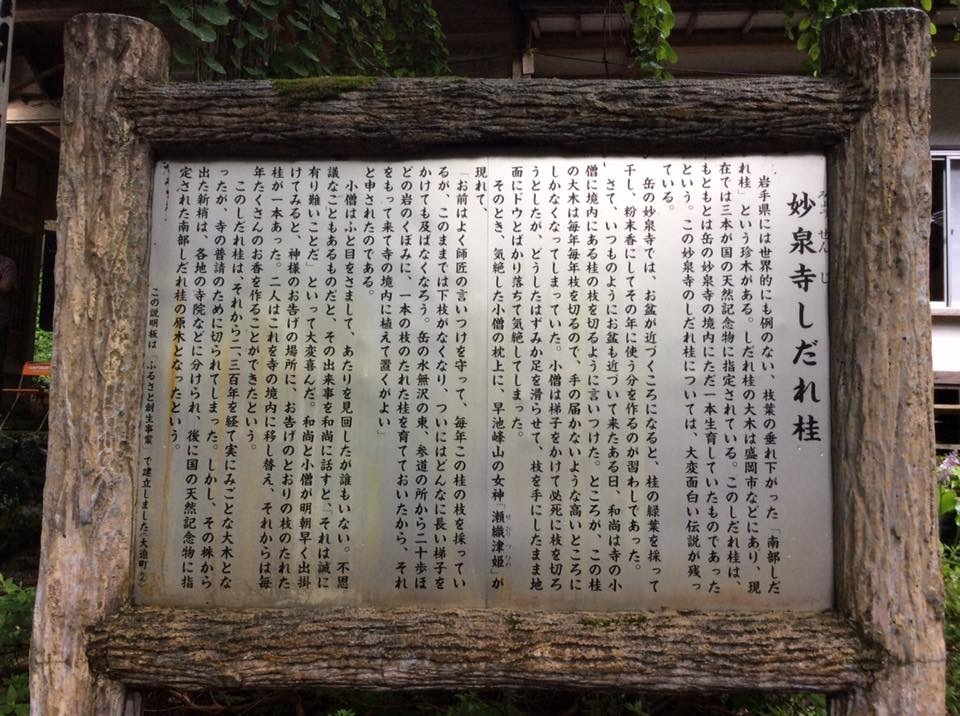 妙泉寺しだれ桂
みょうせんじ
岩手県には世界的にも例のない、枝葉の垂れ下がった「南部しだ
れ桂」という珍木がある。しだれ桂の大木は盛岡市などにあり、現
在では三本が国の天然記念物に指定されている。このしだれ桂は、
もともとは岳の妙泉寺の境内にただ一本生育していたものであった
という。この妙泉寺のしだれ桂については、大変面白い伝説が残っ
ている。
岳の妙泉寺では、お盆が近づくころになると、桂の緑葉を採って
干し、粉末香にしてその年に使う分を作るのが習わしであった。
さて、いつものようにお盆も近づいて来たある日、和尚は寺の小
僧に境内にある桂の枝を切るように言いつけた。ところが、この桂
の大木は毎年毎年枝を切るので、手の届かないような高いところに
しかなくなってしまっていた。小僧は梯子をかけて必死に枝を切ろ
うとしたが、どうしたはずみか足を滑らせて、枝を手にしたまま地
面にドウとばかり落ちて気絶してしまった。
そのとき、気絶した小僧の枕上に、早池峰山の女神「瀬織津姫」が
せおりつひめ
現れ、
「お前はよく師匠の言いつけを守って、毎年この桂の枝を採ってい
るが、このままでは下枝がなくなり、ついにはどんなに長い梯子を
かけても及ばなくなろう。岳の水無沢の東、参道の所から二十歩ほ
どの岩のくぼみに、一本の枝のたれた桂を育てておいたから、それ
をもって来て寺の境内に植えて置くがよい」
と申されたのである。
小僧はふと目をさまして、あたりを見回したが誰もいない。不思
議なこともあるものだと、その出来事を和尚に話すと、「それは誠に
有り難いことだ」といって大変喜んだ。和尚と小僧が明朝早く出掛
けてみると、神様のお告げの場所に、お告げのとおりの枝のたれた
桂が一本あった。二人はこれを寺の境内に移し替え、それからは毎
年たくさんのお香を作ることができたという。
このしだれ桂は、それから二、三百年を経て実にみごとな大木とな
ったが、寺の普請のために切られてしまった。しかし、その株から
出た新梢は、各地の寺院などに分けられ、後に国の天然記念物に指
定された南部しだれ桂の原木となったという。
この説明板は「ふるさと創生事業」で建立しました(大迫町